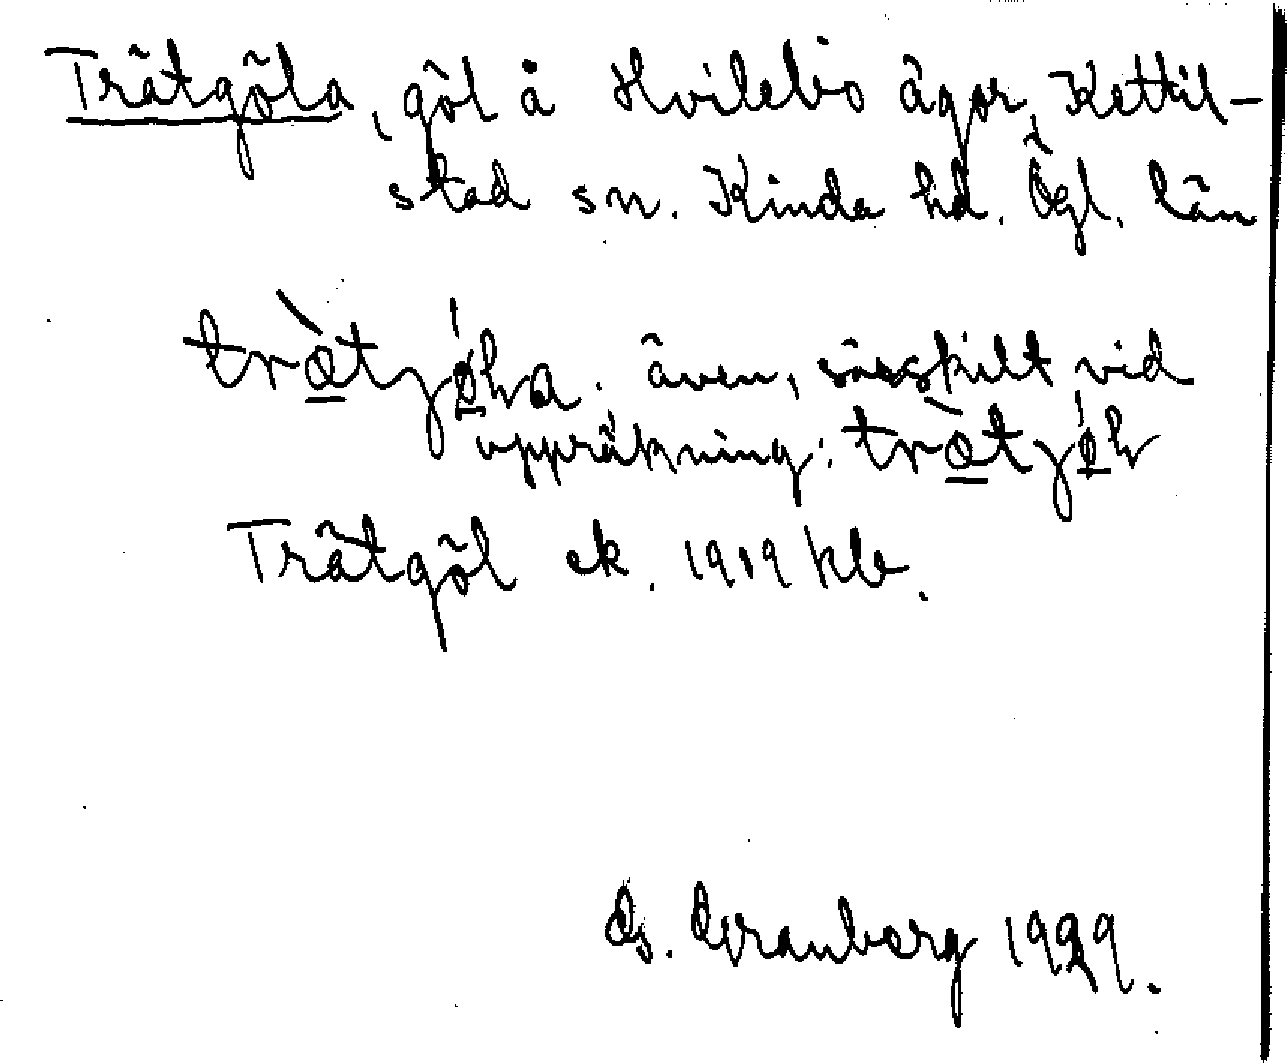 Trätgöla, göl å Hvilebo ägor, Kettil-
stad sn. Kinda hd. Ögl. län
även, särskilt vid
uppräkning:
Trätgöl ek. 1919 kb.
G. Granberg 1929.